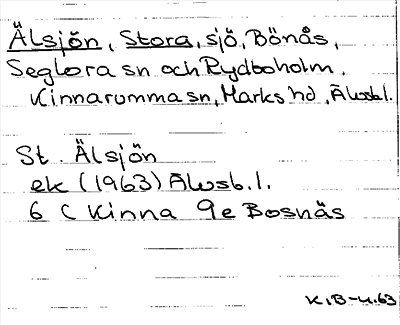 Älsjön, Stora, sjö, Bönås,
Seglora sn och Rydboholm,
Kinnarumma sn, Marks hd, Älvsbl.
St. Älsjön
ek (1963) Älvsb. l.
6 C Kinna 9e Bosnäs
K.B-u.63